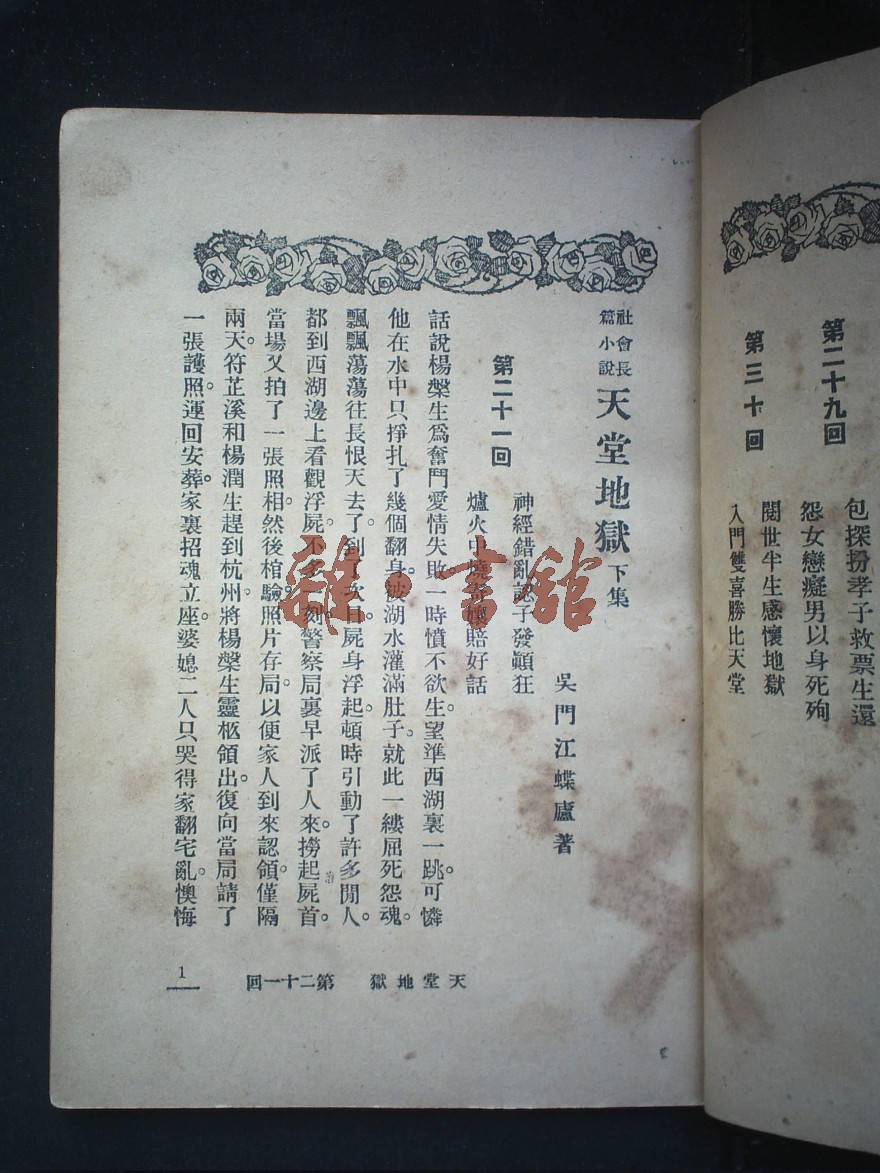 第二十九回
包探扮孝子救票生還
怨女戀癡男以身死殉
第三十回
閱世半生感懷地獄
入門雙喜勝比天堂
社會長
篇小說
天堂地獄 下集
吳門江蝶廬著
第二十一回
神經錯亂 子發顛狂
爐火中燒 孃賠好話
話說楊槃生爲奮鬥愛情失敗一時憤不欲生。望準西湖裏一跳。可憐
他在水中只掙扎了幾個翻身。被湖水灌滿肚子。就此一縷屈死怨魂。
飄飄蕩蕩往長恨天去了。到了次日。屍身浮起。頓時引動了許多閒人。
都到西湖邊上看觀浮屍。不多一刻。警察局裏早派了人來。撈起屍首。
當場又拍了一張照相。然後棺驗。照片存局。以便家人到來認領。僅隔
兩天。符芷溪和楊潤生趕到杭州。將楊槃生靈柩領出。復向當局請了
一張護照。運回安葬。家裏招魂立座。婆媳二人只哭得家翻宅亂。懊悔
天堂地獄 第二十一回
1
雜·書館